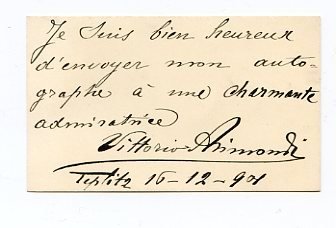 Je suis bien heureux
d'envoyer mon auto-
graphe à une charmante
admiratrice
Vittorio Arimondi
Teplitz 16-12-94